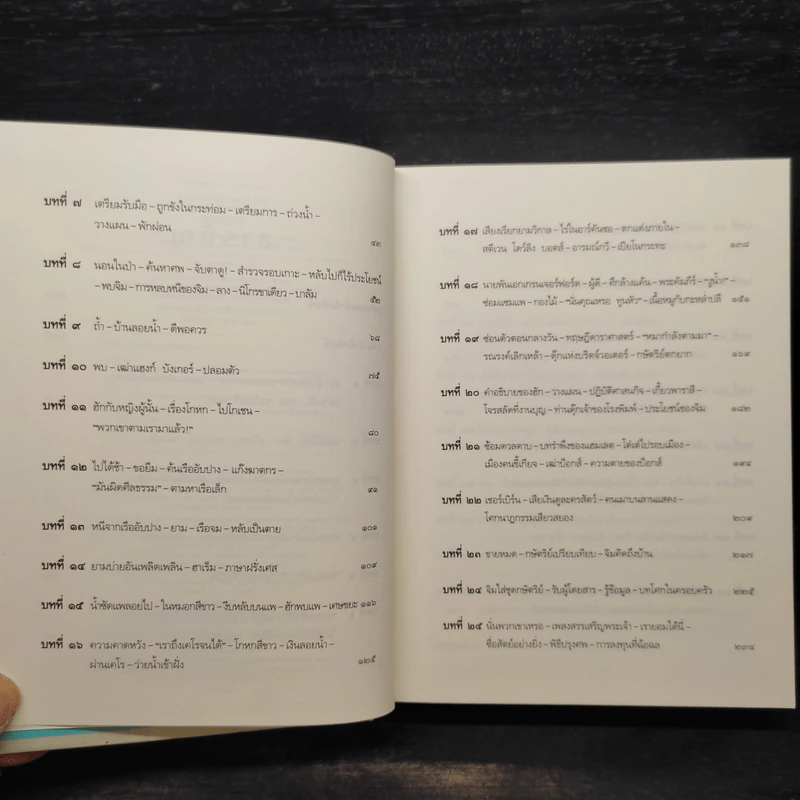 บทที่ ๗ เตรียมรับมือ – ถูกขังในกระท่อม – เตรียมการ – ถ่วงน้ำ –
วางแผน – พักผ่อน ๔๓
บทที่ ๘ นอนในป่า – ค้นหาศพ – จับตาดู! – สำรวจรอบเกาะ – หลับไปก็ไร้ประโยชน์
– พบจิม – การหลบหนีของจิม – ลาง – นิโกรขาเดียว – บาลัม ๕๒
บทที่ ๙ ถ้ำ – บ้านลอยน้ำ – ดีพอควร ๖๘
บทที่ ๑๐ พบ – เฒ่าแฮงก์ บังเกอร์ – ปลอมตัว ๗๕
บทที่ ๑๑ ฮักกับหญิงผู้นั้น – เรื่องโกหก – ไปโกเชน –
“พวกเขาตามเรามาแล้ว!” ๘๐
บทที่ ๑๒ ไปได้ช้า – ขอยืม – ค้นเรืออับปาง – แก๊งฆาตกร –
“มันผิดศีลธรรม” – ตามหาเรือเล็ก ๙๑
บทที่ ๑๓ หนีจากเรืออับปาง – ยาม – เรือจม – หลับเป็นตาย ๑๐๑
บทที่ ๑๔ ยามบ่ายอันเพลิดเพลิน – ฮาเร็ม – ภาษาฝรั่งเศส ๑๐๙
บทที่ ๑๕ น้ำซัดแพลอยไป – ในหมอกสีขาว – งีบหลับบนแพ – ฮักพบแพ – เศษขยะ ๑๑๖
บทที่ ๑๖ ความคาดหวัง – “เราถึงเคโรจนได้” – โกหกสีขาว – เงินลอยน้ำ –
ผ่านเคโร – ว่ายน้ำเข้าฝั่ง ๑๒๕
บทที่ ๑๗ เสียงเรียกยามวิกาล – ไร่ในอาร์คันซอ – ตกแต่งภายใน –
สตีเวน โดว์ลิง บอตส์ – อารมณ์กวี – เปียโนกระทะ ๑๓๘
บทที่ ๑๘ นายพันเอกเกรนเจอร์ฟอร์ด – ผู้ดี – ศึกล้างแค้น – พระคัมภีร์ – “งูน้ำ!” –
ซ่อมแซมแพ – กองไม้ – “นั่นคุณเหรอ ทูนหัว” – เนื้อหมูกับกะหล่ำปลี ๑๕๑
บทที่ ๑๙ ซ่อนตัวตอนกลางวัน – ทฤษฎีดาราศาสตร์ – “หมากำลังตามมา” –
รณรงค์เลิกเหล้า – ดุ๊กแห่งบริดจ์วอเตอร์ – กษัตริย์ตกยาก ๑๖๙
บทที่ ๒๐ คำอธิบายของฮัก – วางแผน – ปฏิบัติศาสนกิจ – เกี้ยวพาราสี –
โจรสลัดที่งานบุญ – ท่านดุ๊กเจ้าของโรงพิมพ์ – ประโยชน์ของจิม ๑๘๒
บทที่ ๒๑ ซ้อมดวลดาบ – บทรำพึงของแฮมเลต – โต๋เต๋ไปรอบเมือง –
เมืองคนขี้เกียจ – เฒ่าบ็อกส์ – ความตายของบ็อกส์ ๑๙๔
บทที่ ๒๒ เชอร์เบิร์น – เสียเงินดูละครสัตว์ – คนเมาบนลานแสดง –
โศกนาฏกรรมเสียวสยอง ๒๐๙
บทที่ ๒๓ ขายหมด – กษัตริย์เปรียบเทียบ – จิมคิดถึงบ้าน ๒๑๗
บทที่ ๒๔ จิมใส่ชุดกษัตริย์ – รับผู้โดยสาร – รู้ข้อมูล – บทโศกในครอบครัว ๒๒๕
บทที่ ๒๕ นั่นพวกเขาเหรอ – เพลงสรรเสริญพระเจ้า – เรายอมได้นี่ –
ซื่อสัตย์อย่างยิ่ง – พิธีปรุงศพ – การลงทุนที่ฉ้อฉล ๒๓๔